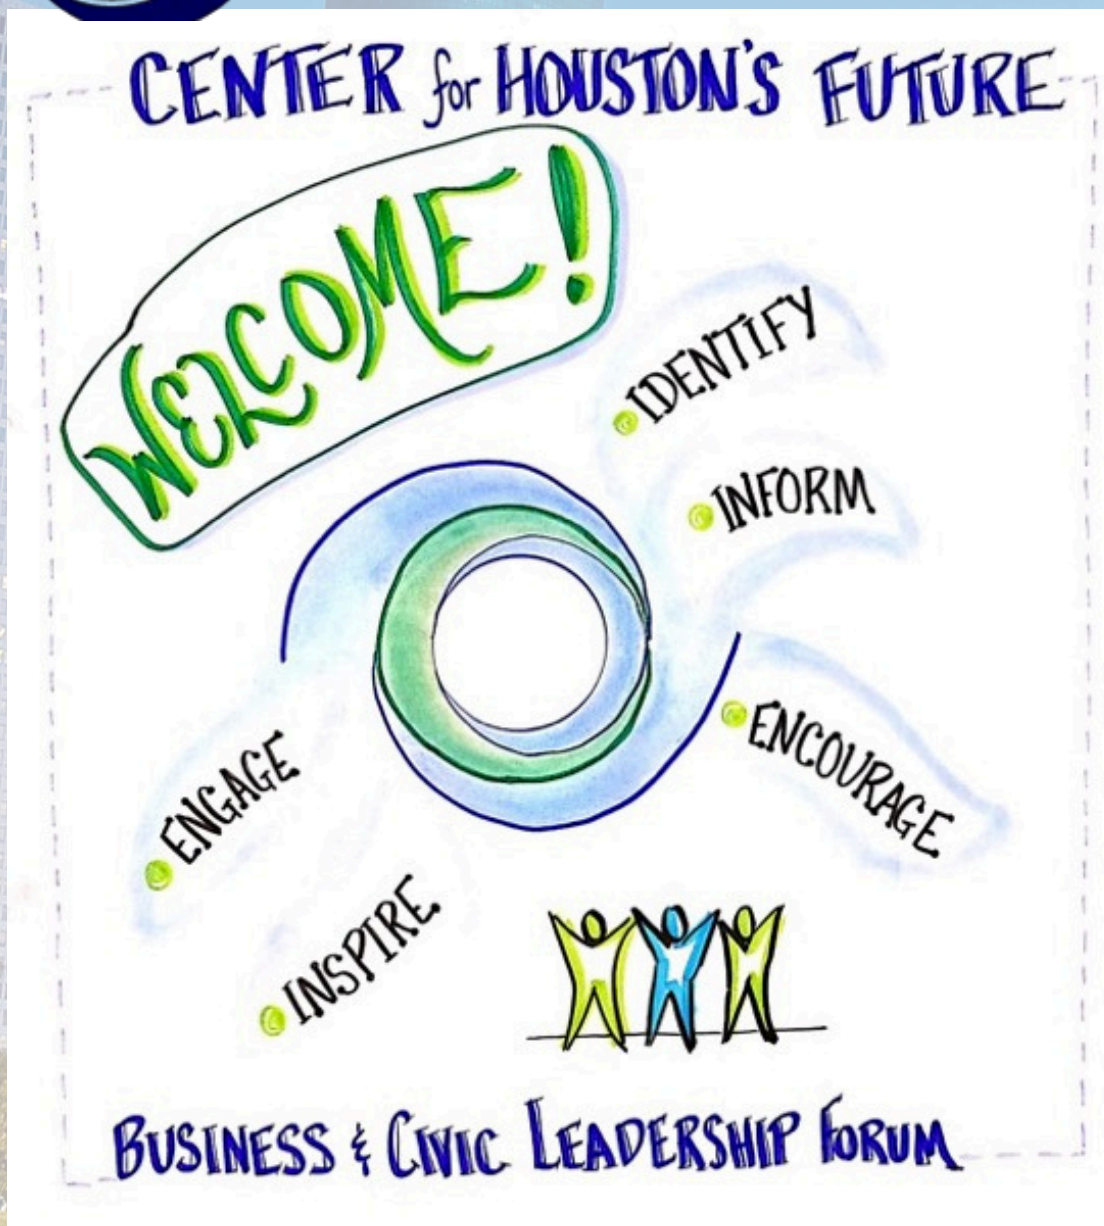 CENTER for HOUSTON'S FUTURE
WELCOME!
• IDENTIFY
• INFORM
• ENCOURAGE
• ENGAGE
• INSPIRE
BUSINESS & CIVIC LEADERSHIP FORUM